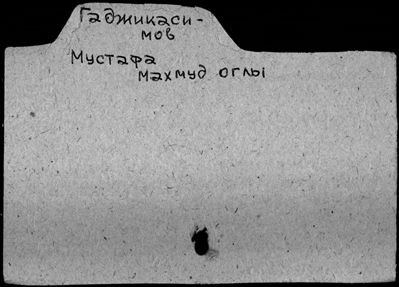 Гаджикаси-
мов
Мустафа
Махмуд оглы